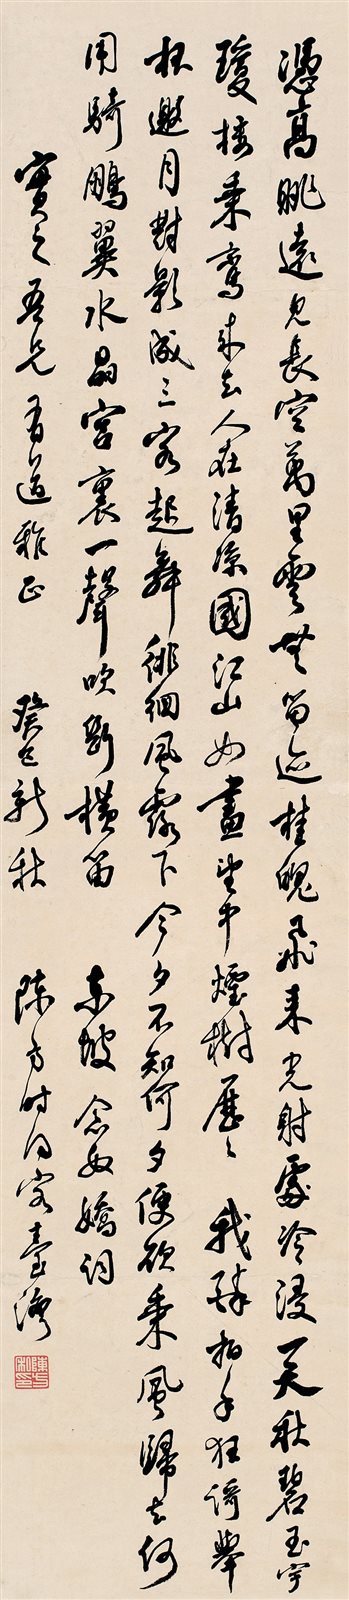 憑高眺遠見長空萬里雲無留迹桂魄飛來光射處冷浸一天秋碧玉宇
瓊樓乘鸞來去人在清涼國江山如畫望中煙樹歷〻我醉拍手狂謌舉
杯邀月對影成三客起舞徘徊風露下今夕不知何夕便欲乘風歸去何
用騎鵬翼水晶宮裏一聲吹斷橫笛 東坡念奴嬌詞
實之吾兄有道雅正 癸巳新秋 陳方時同客臺灣